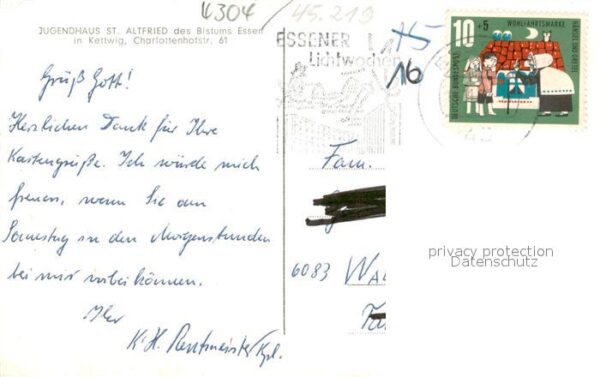 4304
45.219
JUGENDHAUS ST. ALTFRIED des Bistums Essen
in Kettwig, Charlottenhofstr. 61
ESSENER
Lichtwochen
+5
16
10+5 WOHLFAHRTSMARKE
HÄNSEL UND GRETEL
DEUTSCHE BUNDESPOST
Grüß Gott!
Herzlichen Dank für Ihre
Kartengrüße. Ich würde mich
freuen, wenn Sie am
Sonnstag in den Morgenstunden
bei mir vorbei können.
Ihr
K.H. Rentmeister, Kpl.
Fam.
6083 Wal
privacy protection
Datenschutz